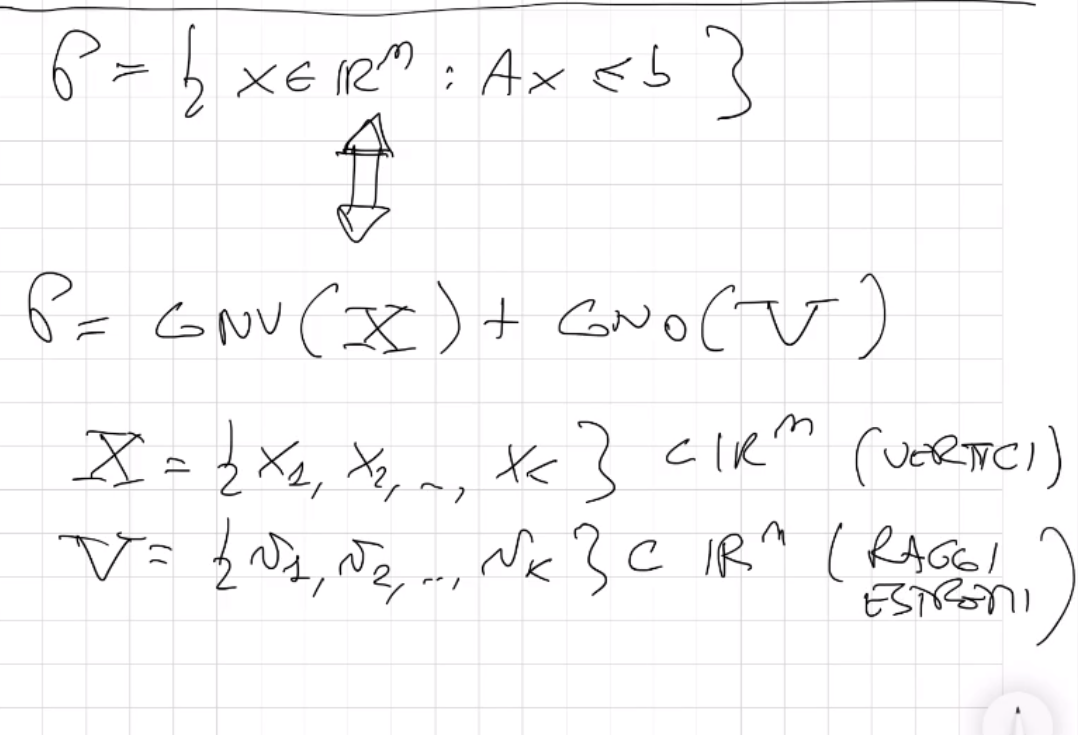 P = { x ∈ ℝⁿ : Ax ≤ b }
P = CONV(X) + CONO(V)
X = { x₁, x₂, .., xₖ } ⊂ ℝⁿ (VERTICI)
V = { v₁, v₂, .., vₖ } ⊂ ℝⁿ (RAGGI
ESTREMI)